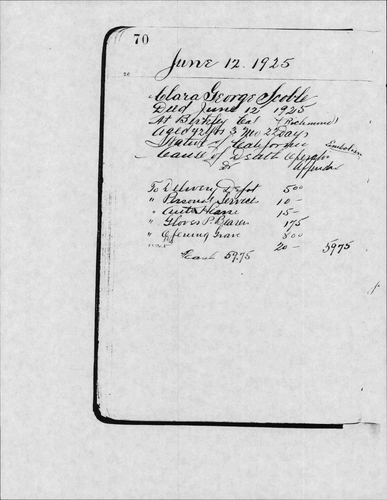 70
June 12. 1925
Clara George Scoble
Died June 12 1925
At Berkeley Cal (Richmond)
Aged 42 yrs 3 Mo 2 Days
Native of California
Cause of Death
To Delivery Depot 500
" Personal Service 10 -
" Auto Hearse 15 -
" Gloves P. Bearers 175
" Opening Grave 800
20 - 5975
Cash 59.75